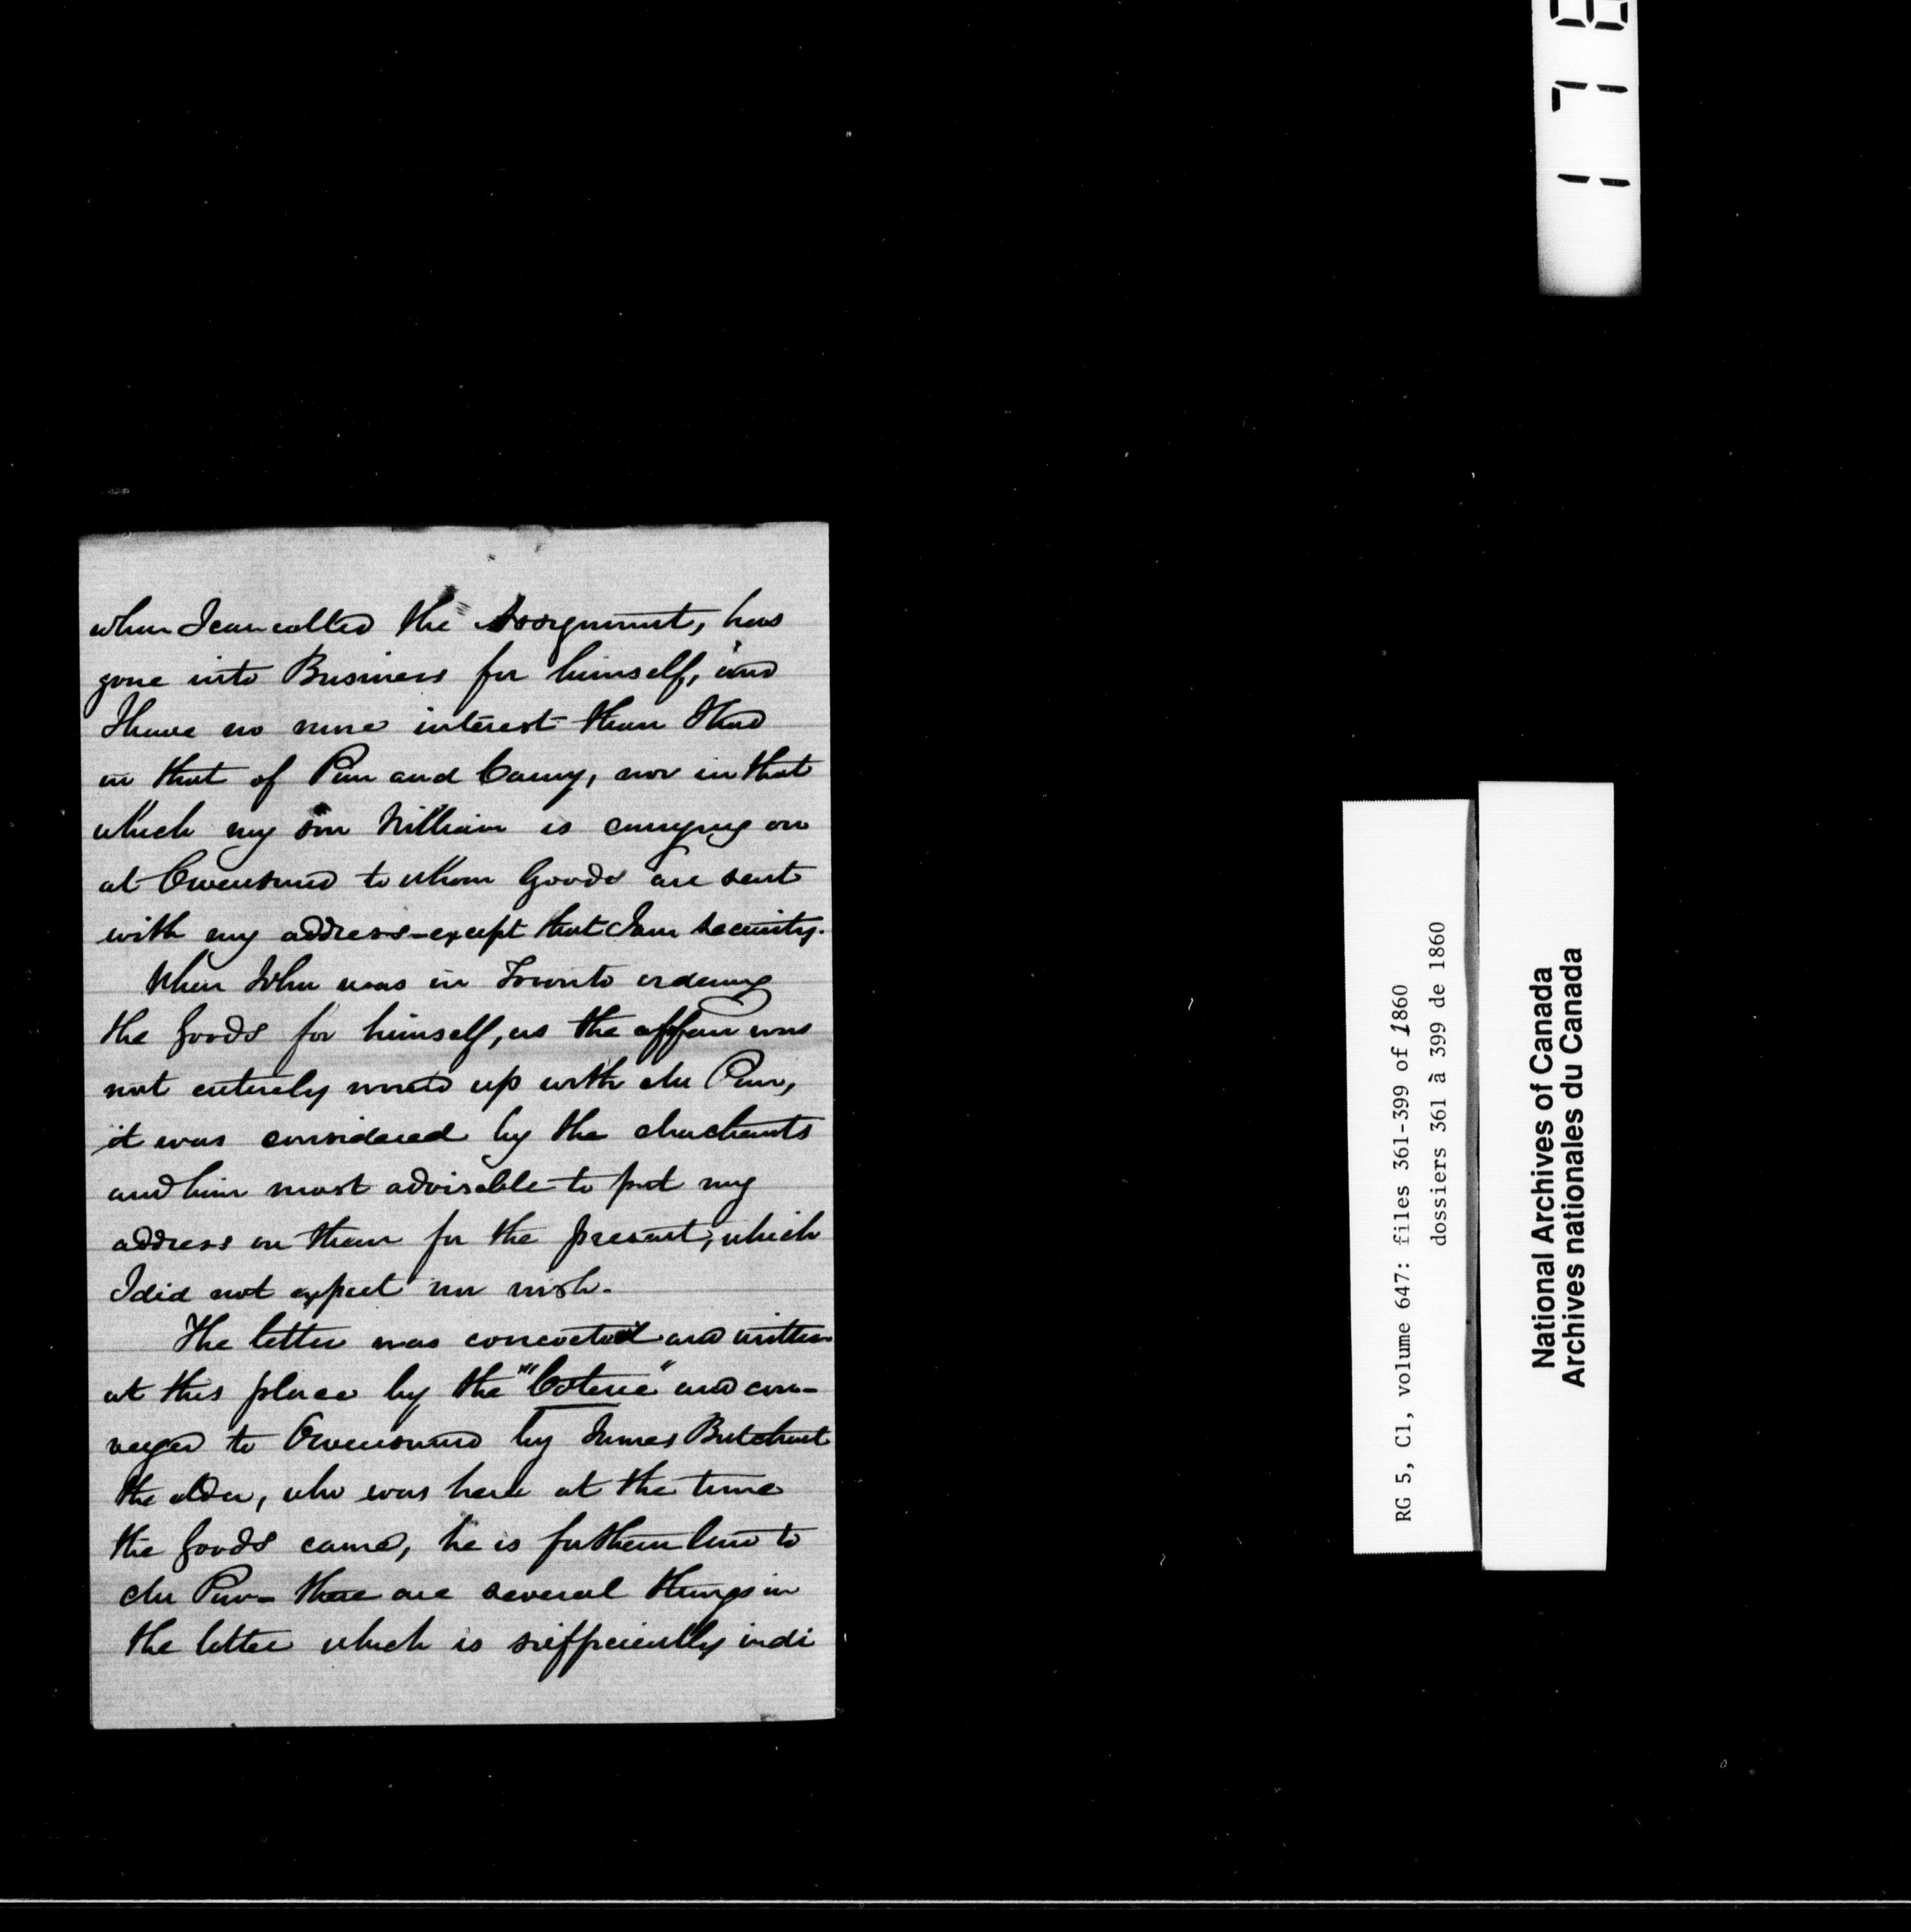 when I cancelled the Assignment, has
gone into Business for himself, and
I have no more interest than I had
in that of Purr and Canny, nor in that
which my son William is carrying on
at Owensound to whom Goods are sent
with my address - except that I am security.
When John was in Toronto ordering
the Goods for himself, as the affair was
not entirely wound up with Mr
it was considered by the Merchants
and him most advisable to put my
address on them for the present, which
I did not expect nor wish.
The letter was concocted and written
at this place by the "Coterie" and con-
veyed to Owensound by James Butchart
the elder, who was here at the time
the Goods came, he is father in law to
Mr - there are several things in
the letter which is sufficiently indi
RG 5, C1, volume 647: files 361-399 of 1860
dossiers 361 à 399 de 1860
National Archives of Canada
Archives nationales du Canada
178